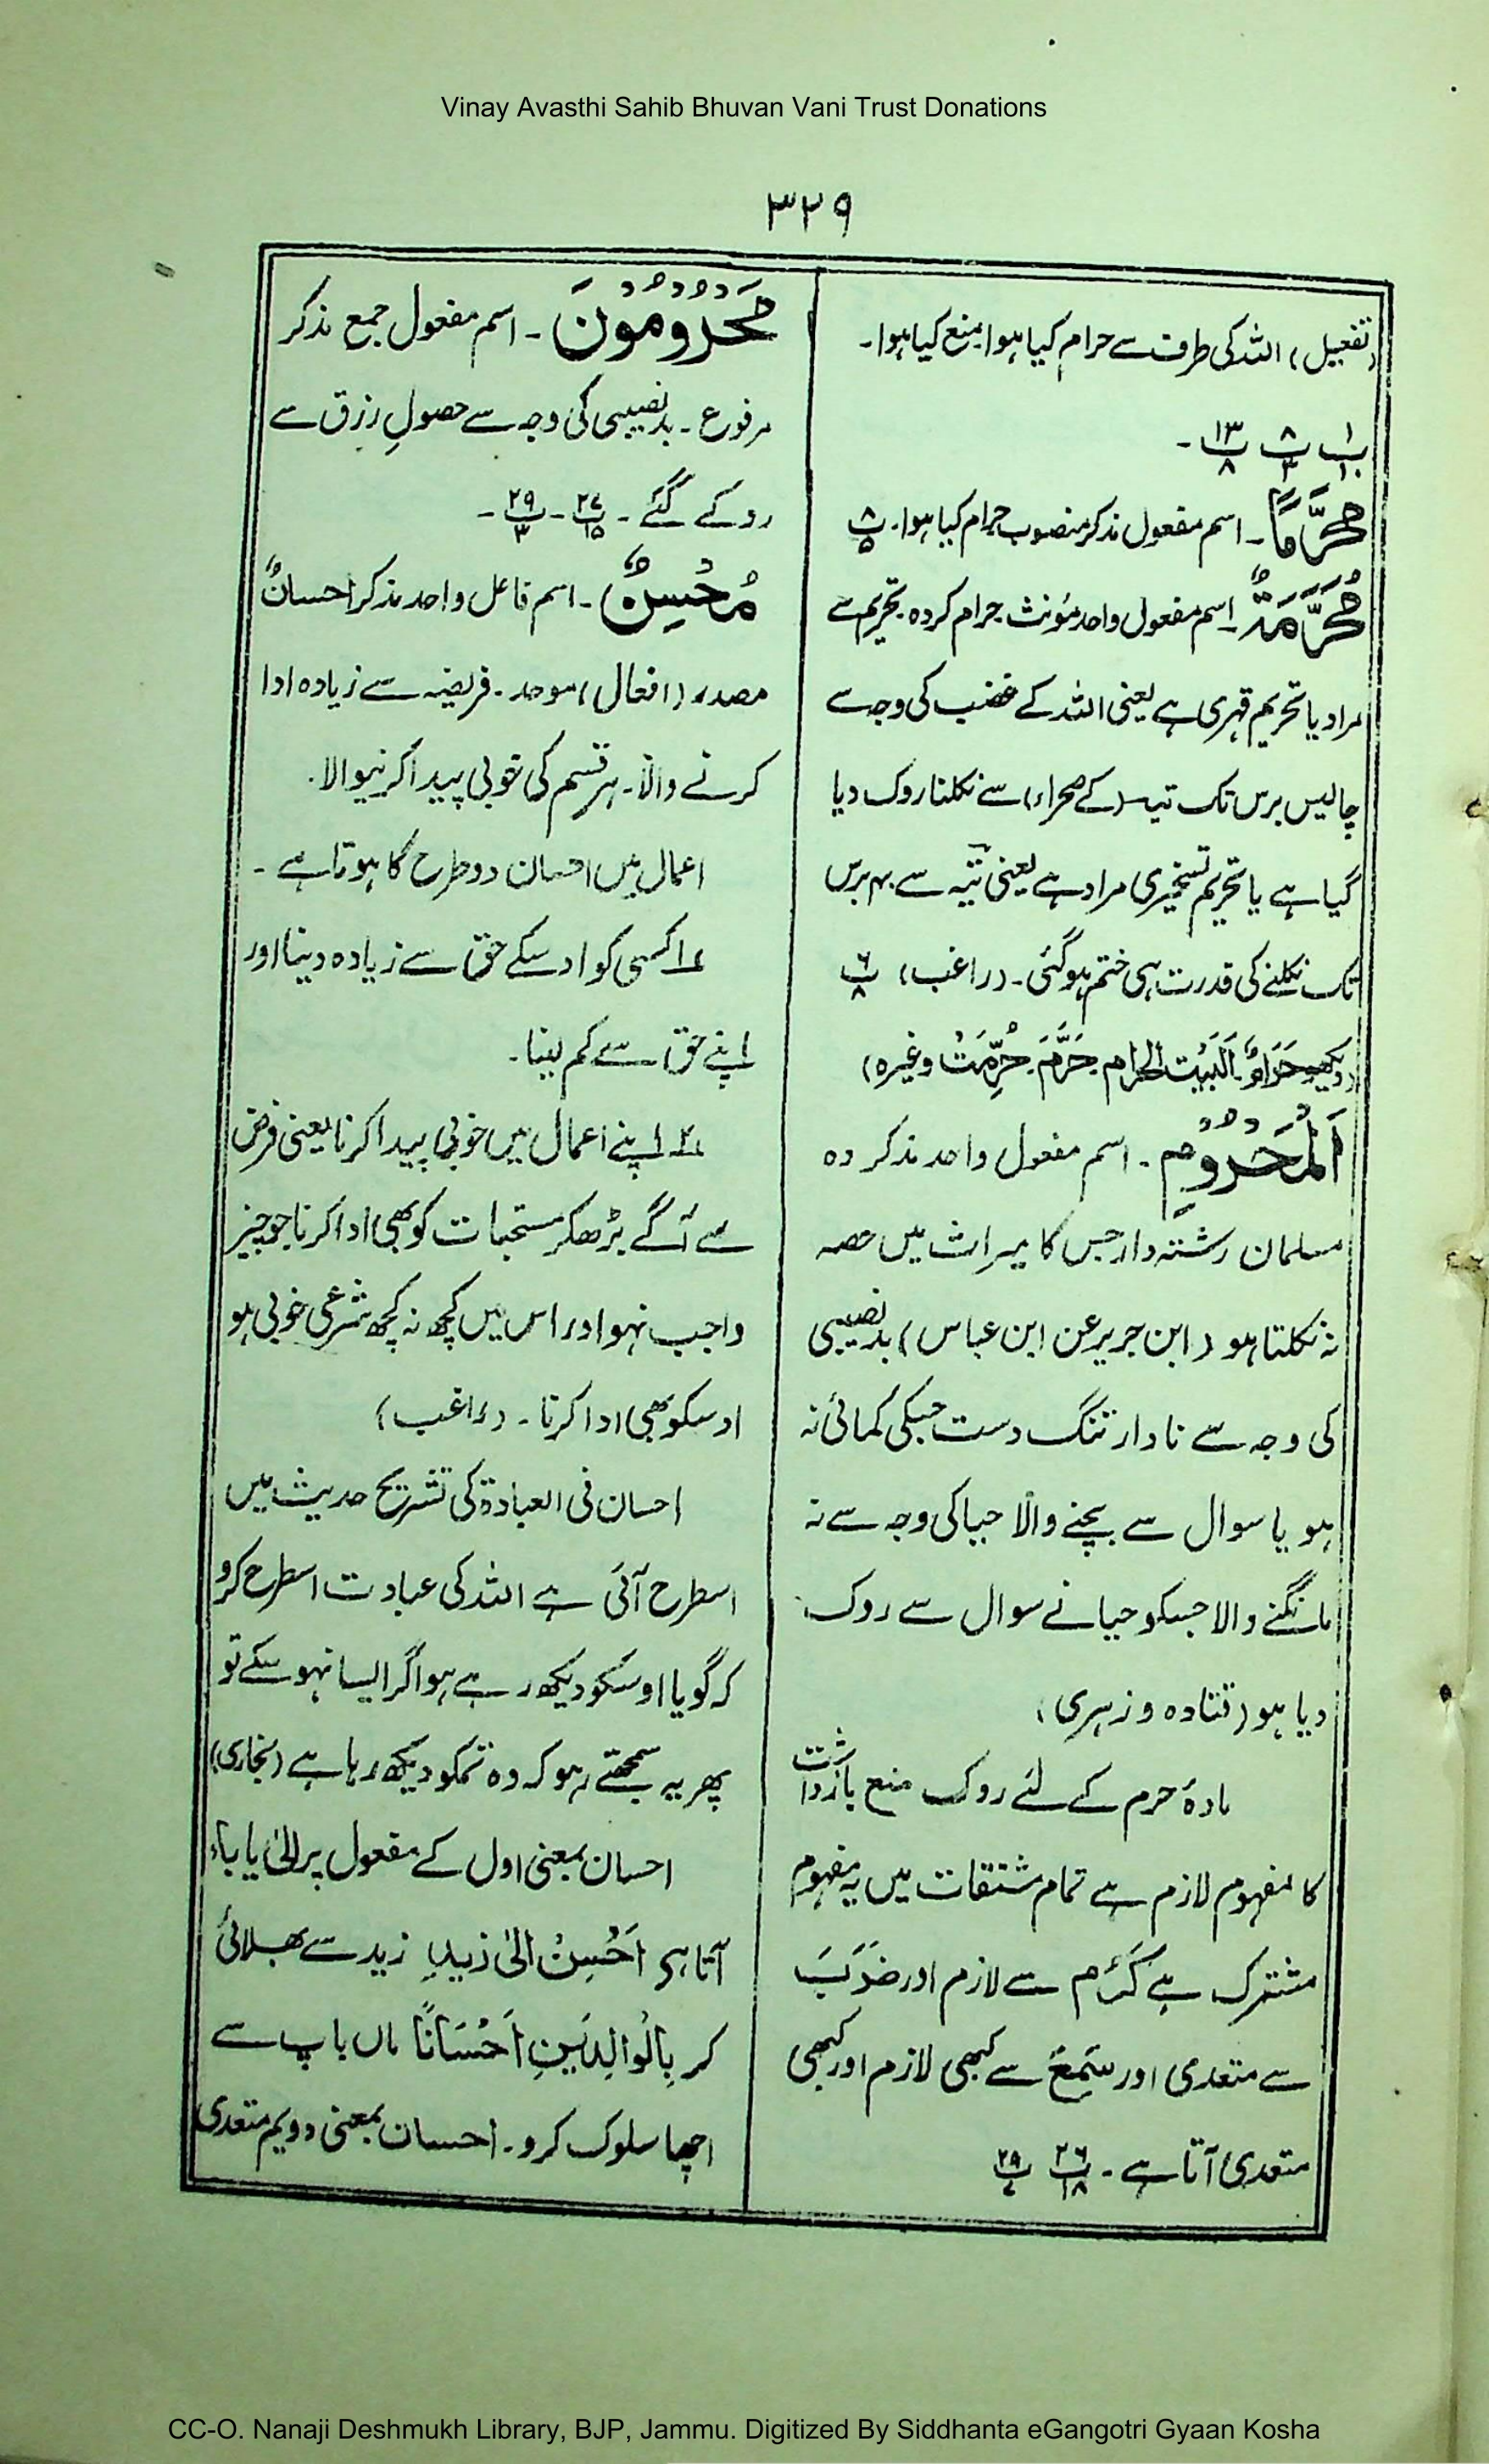 Vinay Avasthi Sahib Bhuvan Vani Trust Donations
۳۲۹
(تفعیل) اللہ کی طرف سے حرام کیا ہوا۔ منع کیا ہوا۔
پ۱/۱۰ پ۸/۴ پ۱۳/۸ ۔
مُحَرَّمًا۔ اسم مفعول مذکر منصوب حرام کیا ہوا۔ پ۸/۵
مُحَرَّمَةٌ۔ اسم مفعول واحد مؤنث حرام کردہ۔ تحریم سے
مراد یا تحریم قہری ہے یعنی اللہ کے غضب کی وجہ سے
چالیس برس تک تیہ (کے صحراء) سے نکلنا روک دیا
گیا ہے یا تحریم تسخیری مراد ہے یعنی تیہ سے ۴۰ برس
تک نکلنے کی قدرت ہی ختم ہوگئی۔ (راغب) پ۶/۸
(دیکھو حَرَامٌ۔ اَلْبَیْت الحرام۔ حَرَّمَ۔ حُرِّمَتْ وغیرہ)
اَلْمَحْرُومِ۔ اسم مفعول واحد مذکر وہ
مسلمان رشتہ دار جس کا میراث میں حصہ
نہ نکلتا ہو (ابن جریر عن ابن عباس) بدنصیبی
کی وجہ سے نادار تنگ دست جسکی کمائی نہ
ہو یا سوال سے بچنے والا حیا کی وجہ سے نہ
مانگنے والا جسکو حیا نے سوال سے روک
دیا ہو (قتادہ و زہری)
مادۂ حرم کے لئے روک منع بازداشت
کا مفہوم لازم ہے تمام مشتقات میں یہ مفہوم
مشترک ہے کَرُم سے لازم اور ضَرَبَ
سے متعدی اور سَمِعَ سے کبھی لازم اور کبھی
متعدی آتا ہے۔ پ۲۶/۱۸ پ۲۹/۷
مَحْرُومُونَ۔ اسم مفعول جمع مذکر
مرفوع۔ بدنصیبی کی وجہ سے حصولِ رزق سے
روکے گئے۔ پ۲۷/۱۵۔ پ۲۹/۳۔
مُحْسِنٌ۔ اسم فاعل واحد مذکر احسانٌ
مصدر (افعال) موحد۔ فریضہ سے زیادہ ادا
کرنے والا۔ ہر قسم کی خوبی پیدا کرنیوالا۔
اعمال میں احسان دو طرح کا ہوتا ہے۔
؁۱ کسی کو اوسکے حق سے زیادہ دینا اور
اپنے حق سے کم لینا۔
؁۲ اپنے اعمال میں خوبی پیدا کرنا یعنی فرض
سے آگے بڑھکر مستحبات کو بھی ادا کرنا جو چیز
واجب نہو اور اس میں کچھ نہ کچھ شرعی خوبی ہو
اوسکو بھی ادا کرنا۔ (راغب)
احسان فی العبادۃ کی تشریح حدیث میں
اسطرح آئی ہے اللہ کی عبادت اسطرح کرو
کہ گویا اوسکو دیکھ رہے ہو اگر ایسا نہو سکے تو
پھر یہ سمجھتے رہو کہ وہ تمکو دیکھ رہا ہے (بخاری)
احسان بمعنی اول کے مفعول پر الیٰ یا باء
آتا ہے اَحْسِنْ الیٰ زیدٍ زید سے بھلائی
کر بِالْوالِدَیْنِ اَحْسَانًا ماں باپ سے
اچھا سلوک کرو۔ احسان بمعنی دویم متعدی
CC-O. Nanaji Deshmukh Library, BJP, Jammu. Digitized By Siddhanta eGangotri Gyaan Kosha